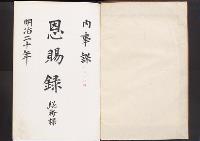 内事課
恩賜録
総務課
明治二十年